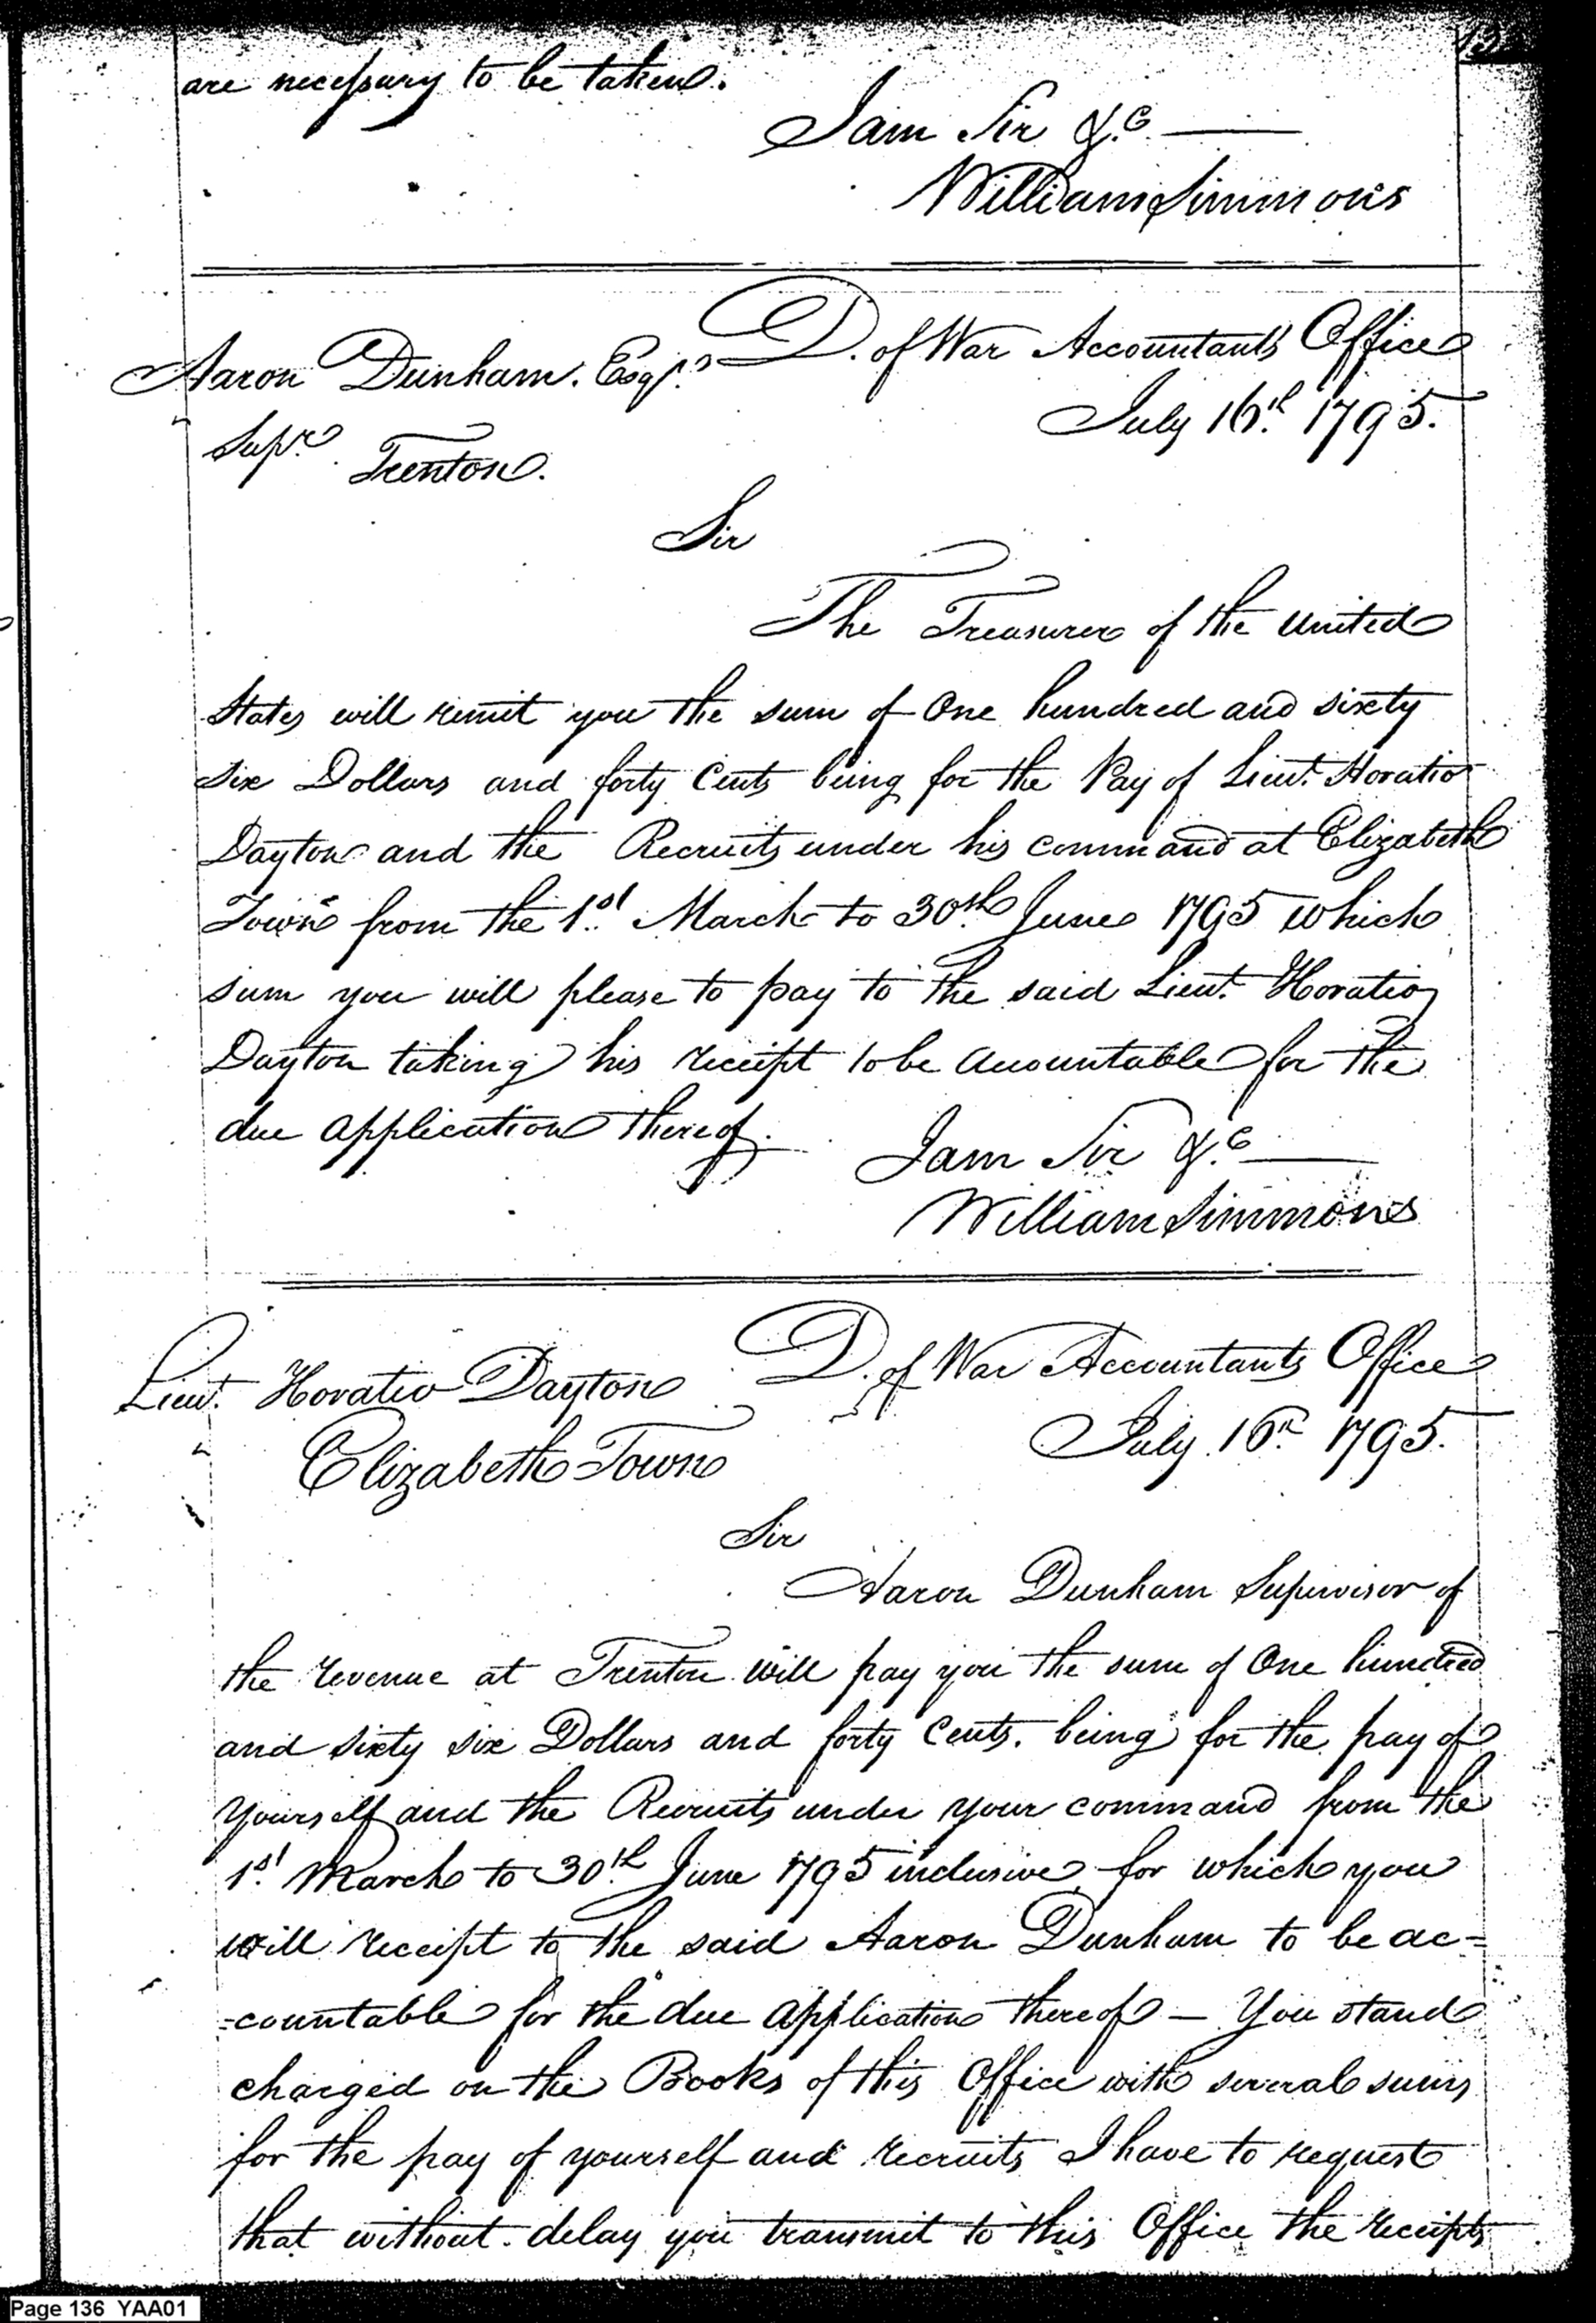 are necessary to be taken.
I am Sir &.c
William Simmons
D. of War Accountants Office
Aaron Dunham. Esqr.
July 16th 1795.
Supr.
Trenton.
Sir
The Treasurer of the United
States will remit you the sum of One hundred and sixty
six Dollars and forty Cents being for the Pay of Lieut. Horatio
Dayton and the Recruits under his command at Elizabeth
Town from the 1st March to 30th June 1795 which
sum you will please to pay to the said Lieut. Horatio
Dayton taking his receipt to be accountable for the
due application thereof.
I am Sir &.c
William Simmons
D. of War Accountants Office
Lieut. Horatio Dayton
July 16th 1795.
Elizabeth Town
Sir
Aaron Dunham Supervisor of
the revenue at Trenton will pay you the sum of One hundred
and sixty six Dollars and forty Cents. being for the pay of
yourself and the Recruits under your command from the
1st March to 30th June 1795 inclusive for which you
will receipt to the said Aaron Dunham to be ac=
=countable for the due application thereof — You stand
charged on the Books of this Office with several sums
for the pay of yourself and recruits I have to request
that without delay you transmit to this Office the receipts
Page 136 YAA01